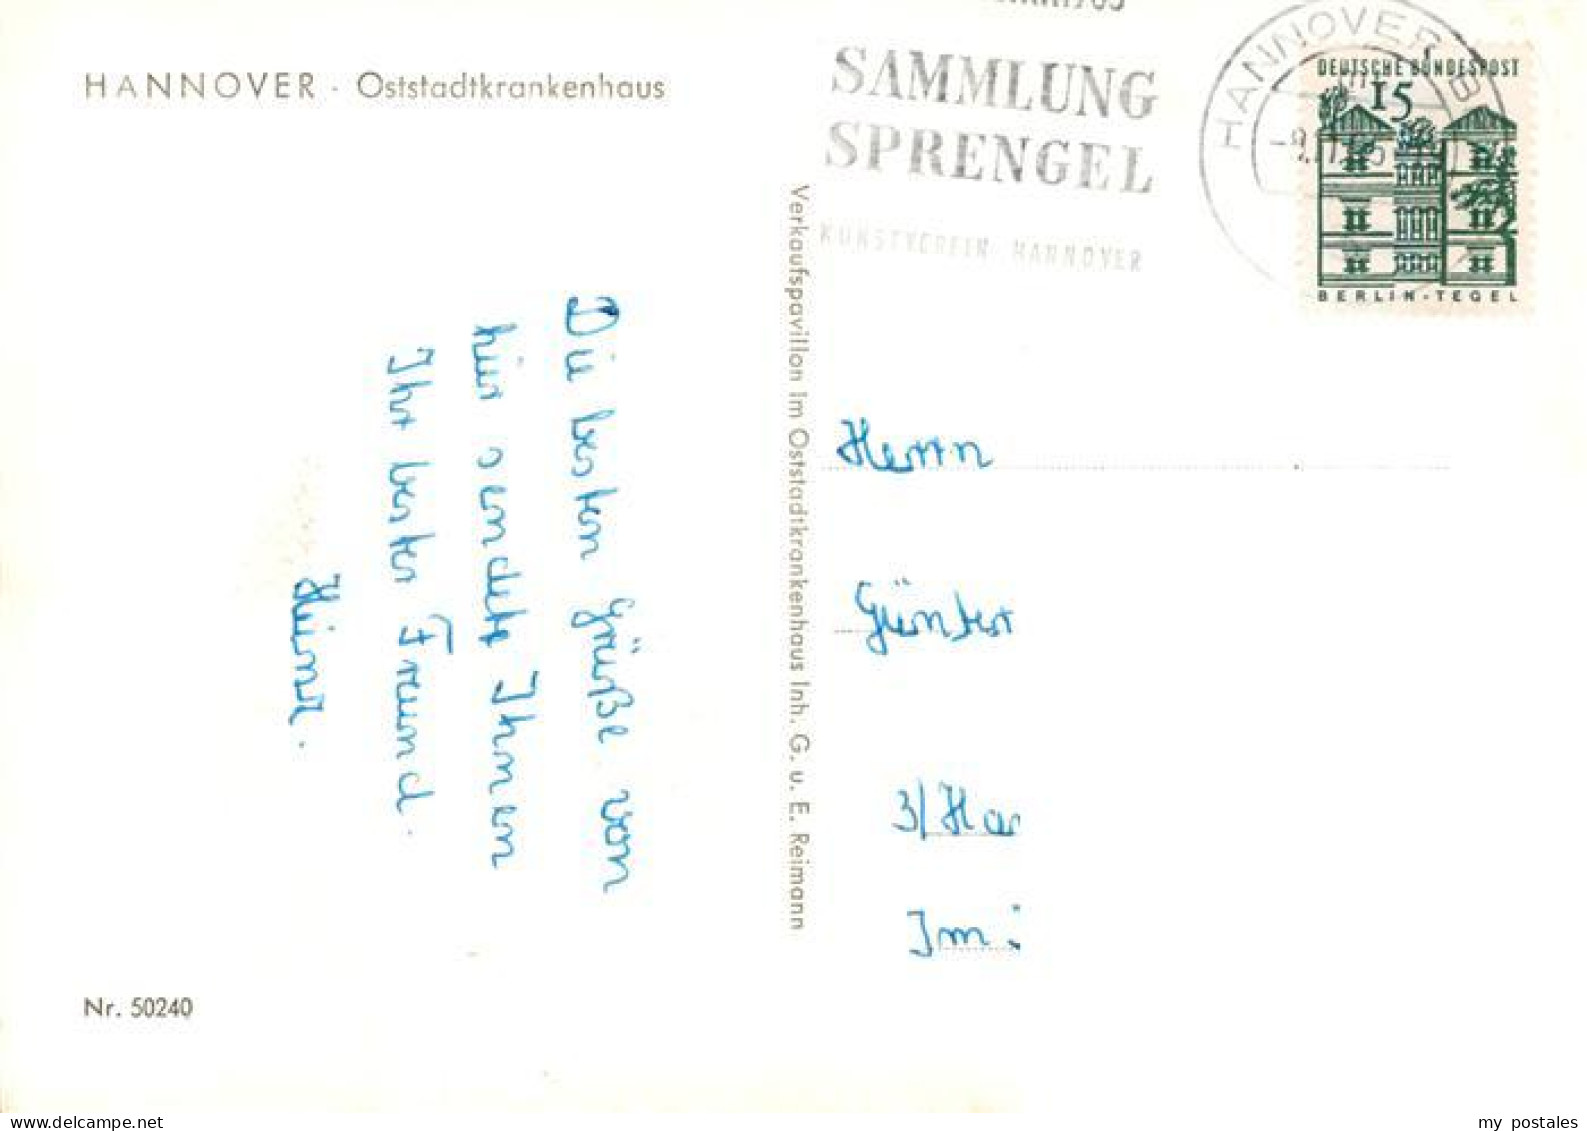 HANNOVER · Oststadtkrankenhaus
SAMMLUNG
SPRENGEL
KUNSTVEREIN HANNOVER
HANNOVER
DEUTSCHE BUNDESPOST
15
BERLIN-TEGEL
Die besten Grüße von
hier sendet Ihnen
Ihr bester Freund.
Verkaufspavillon im Oststadtkrankenhaus Inh. G. u. E. Reimann
Herrn
Günter
3/Ha
Im
Nr. 50240
my postales